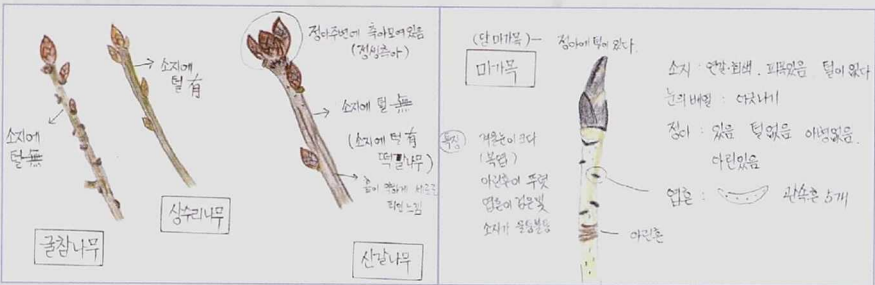 소지에
털 無
굴참나무
소지에
털 有
상수리나무
정아주변에 측아모여있음
(정생측아)
소지에 털 無
(소지에 털 有
떡갈나무)
신갈나무
(당마가목) - 정아에 털이 있다.
마가목
특징 겨울눈이 크다
(복엽)
아린흔이 뚜렷
엽흔이 검은빛
소지가 울퉁불퉁
소지 : 연갈·회색. 피목있음. 털이 없다
눈의배열 : 어긋나기
정아 : 있음 털없음 아병없음.
아린있음
엽흔 : 관속흔 5개
아린흔